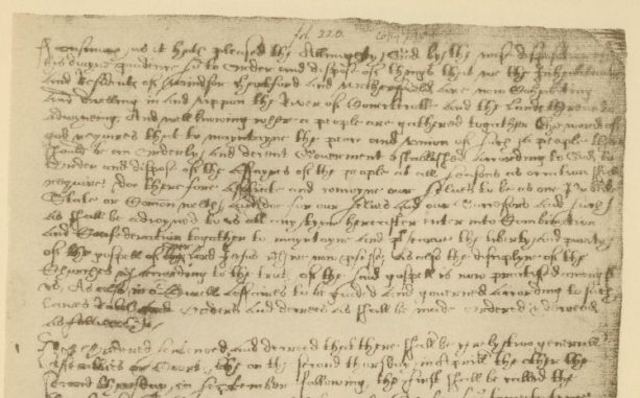 fol. 220.
as it hath pleased the Allmighty God by the wise
his diuyne pruidence so to Order and dispose of things that we the Inhabitants
and Residents of Windsor Harteford and Wethersfield are now Cohabiting
and dwelling in and vppon the River of Conectecotte and the Lands thereunto
adioyneing; And well knowing where a people are gathered together the word of
God requires that to mayntayne the peace and vnion of such a people there
should be an Orderly and decent Gouerment established according to God, to
Order and dispose of the affayres of the people at all seasons as occation shall
require; doe therefore assotiate and conioyne our selues to be as one Publike
State or Comonwelth; and doe for our selues and our Successors and such
as shall be adioyned to vs att any tyme hereafter enter into Combination
and Confederation together to mayntayne and prsearue the liberty and purity
of the gospell of our Lord Jesus wch we now prfesse as also the disciplyne of the
Churches wch according to the truth of the said gospell is now practised amongst
vs, As also in or Ciuell Affaires to be guided and gouerned according to such
Lawes Rules Orders and decrees as shall be made ordered & decreed
as followeth:
It is Ordered sentenced and decreed that there shall be yerely two generall
Assemblies or Courts, the on the second thursday in Aprill, the other the
second thursday in September following, the first shall be called the